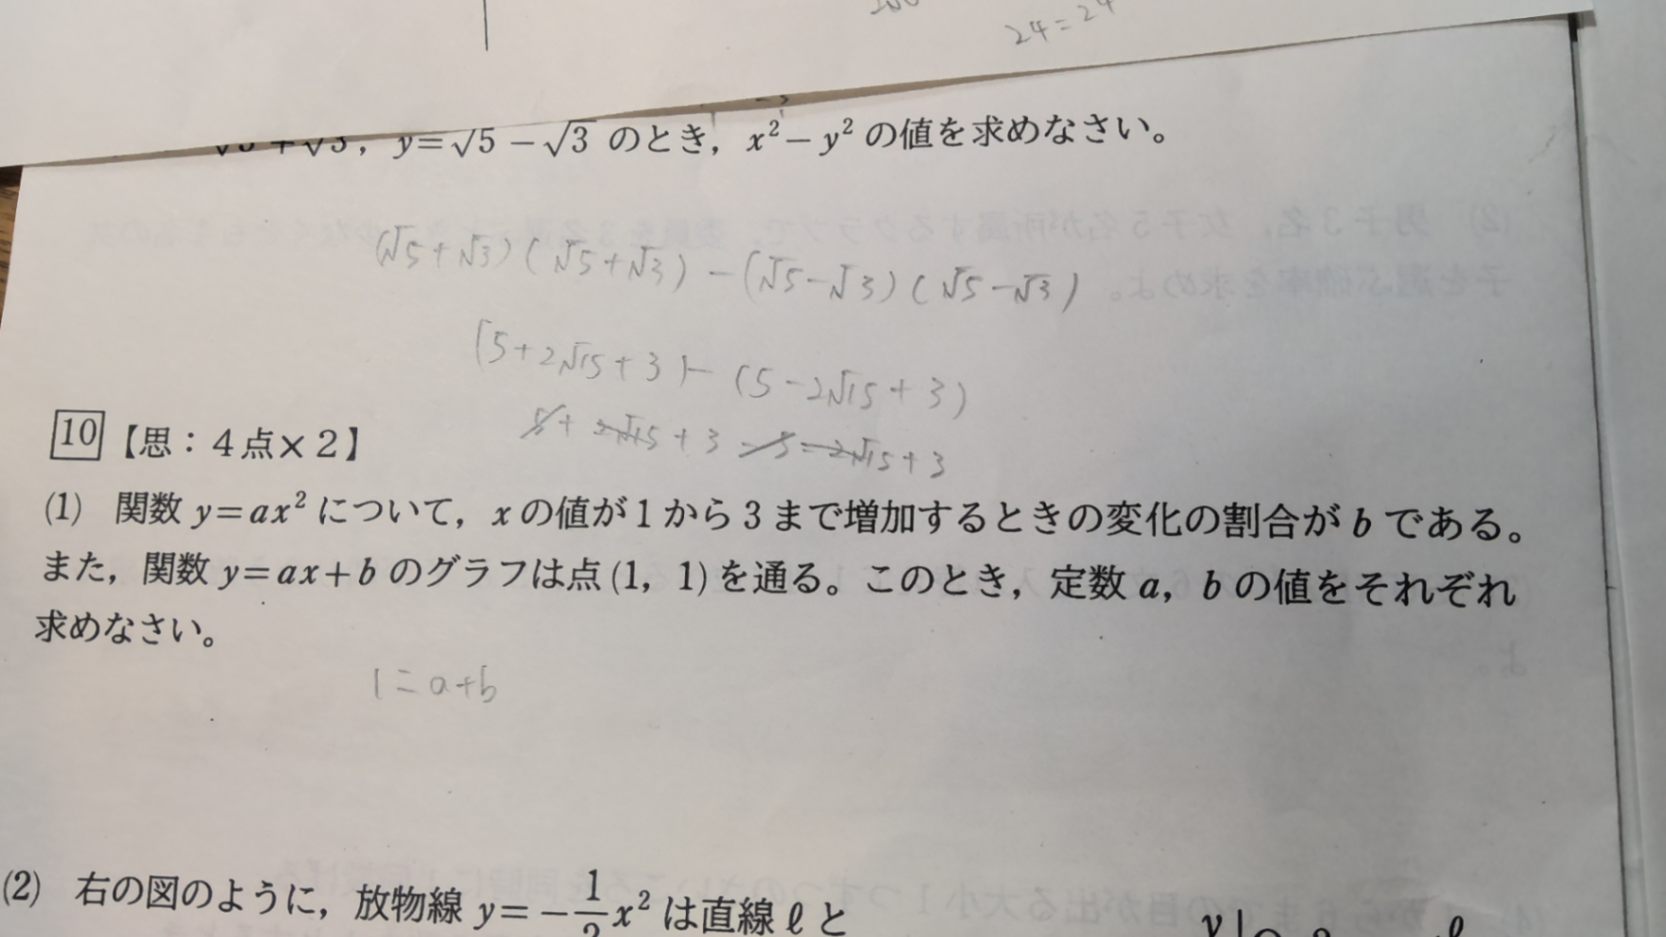 24=24
y=√5-√3 のとき, x²-y² の値を求めなさい。
(√5+√3)(√5+√3)-(√5-√3)(√5-√3)
(5+2√15+3)-(5-2√15+3)
5+2√15+3-5=2√15+3
10【思:4点×2】
(1) 関数 y=ax² について, x の値が1から3まで増加するときの変化の割合が b である。
また, 関数 y=ax+b のグラフは点(1, 1)を通る。このとき, 定数 a, b の値をそれぞれ
求めなさい。
1=a+b
(2) 右の図のように, 放物線 y=-1/2x² は直線 ℓ と
y
ℓ